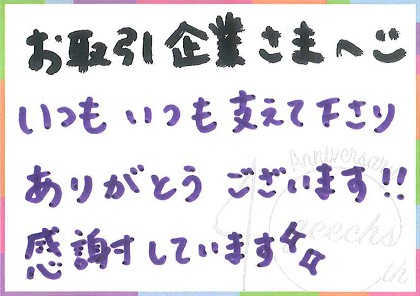 お取引企業さまへ
いつも いつも 支えて下さり
ありがとう ございます!!
感謝しています
Anniversary
geechs
th